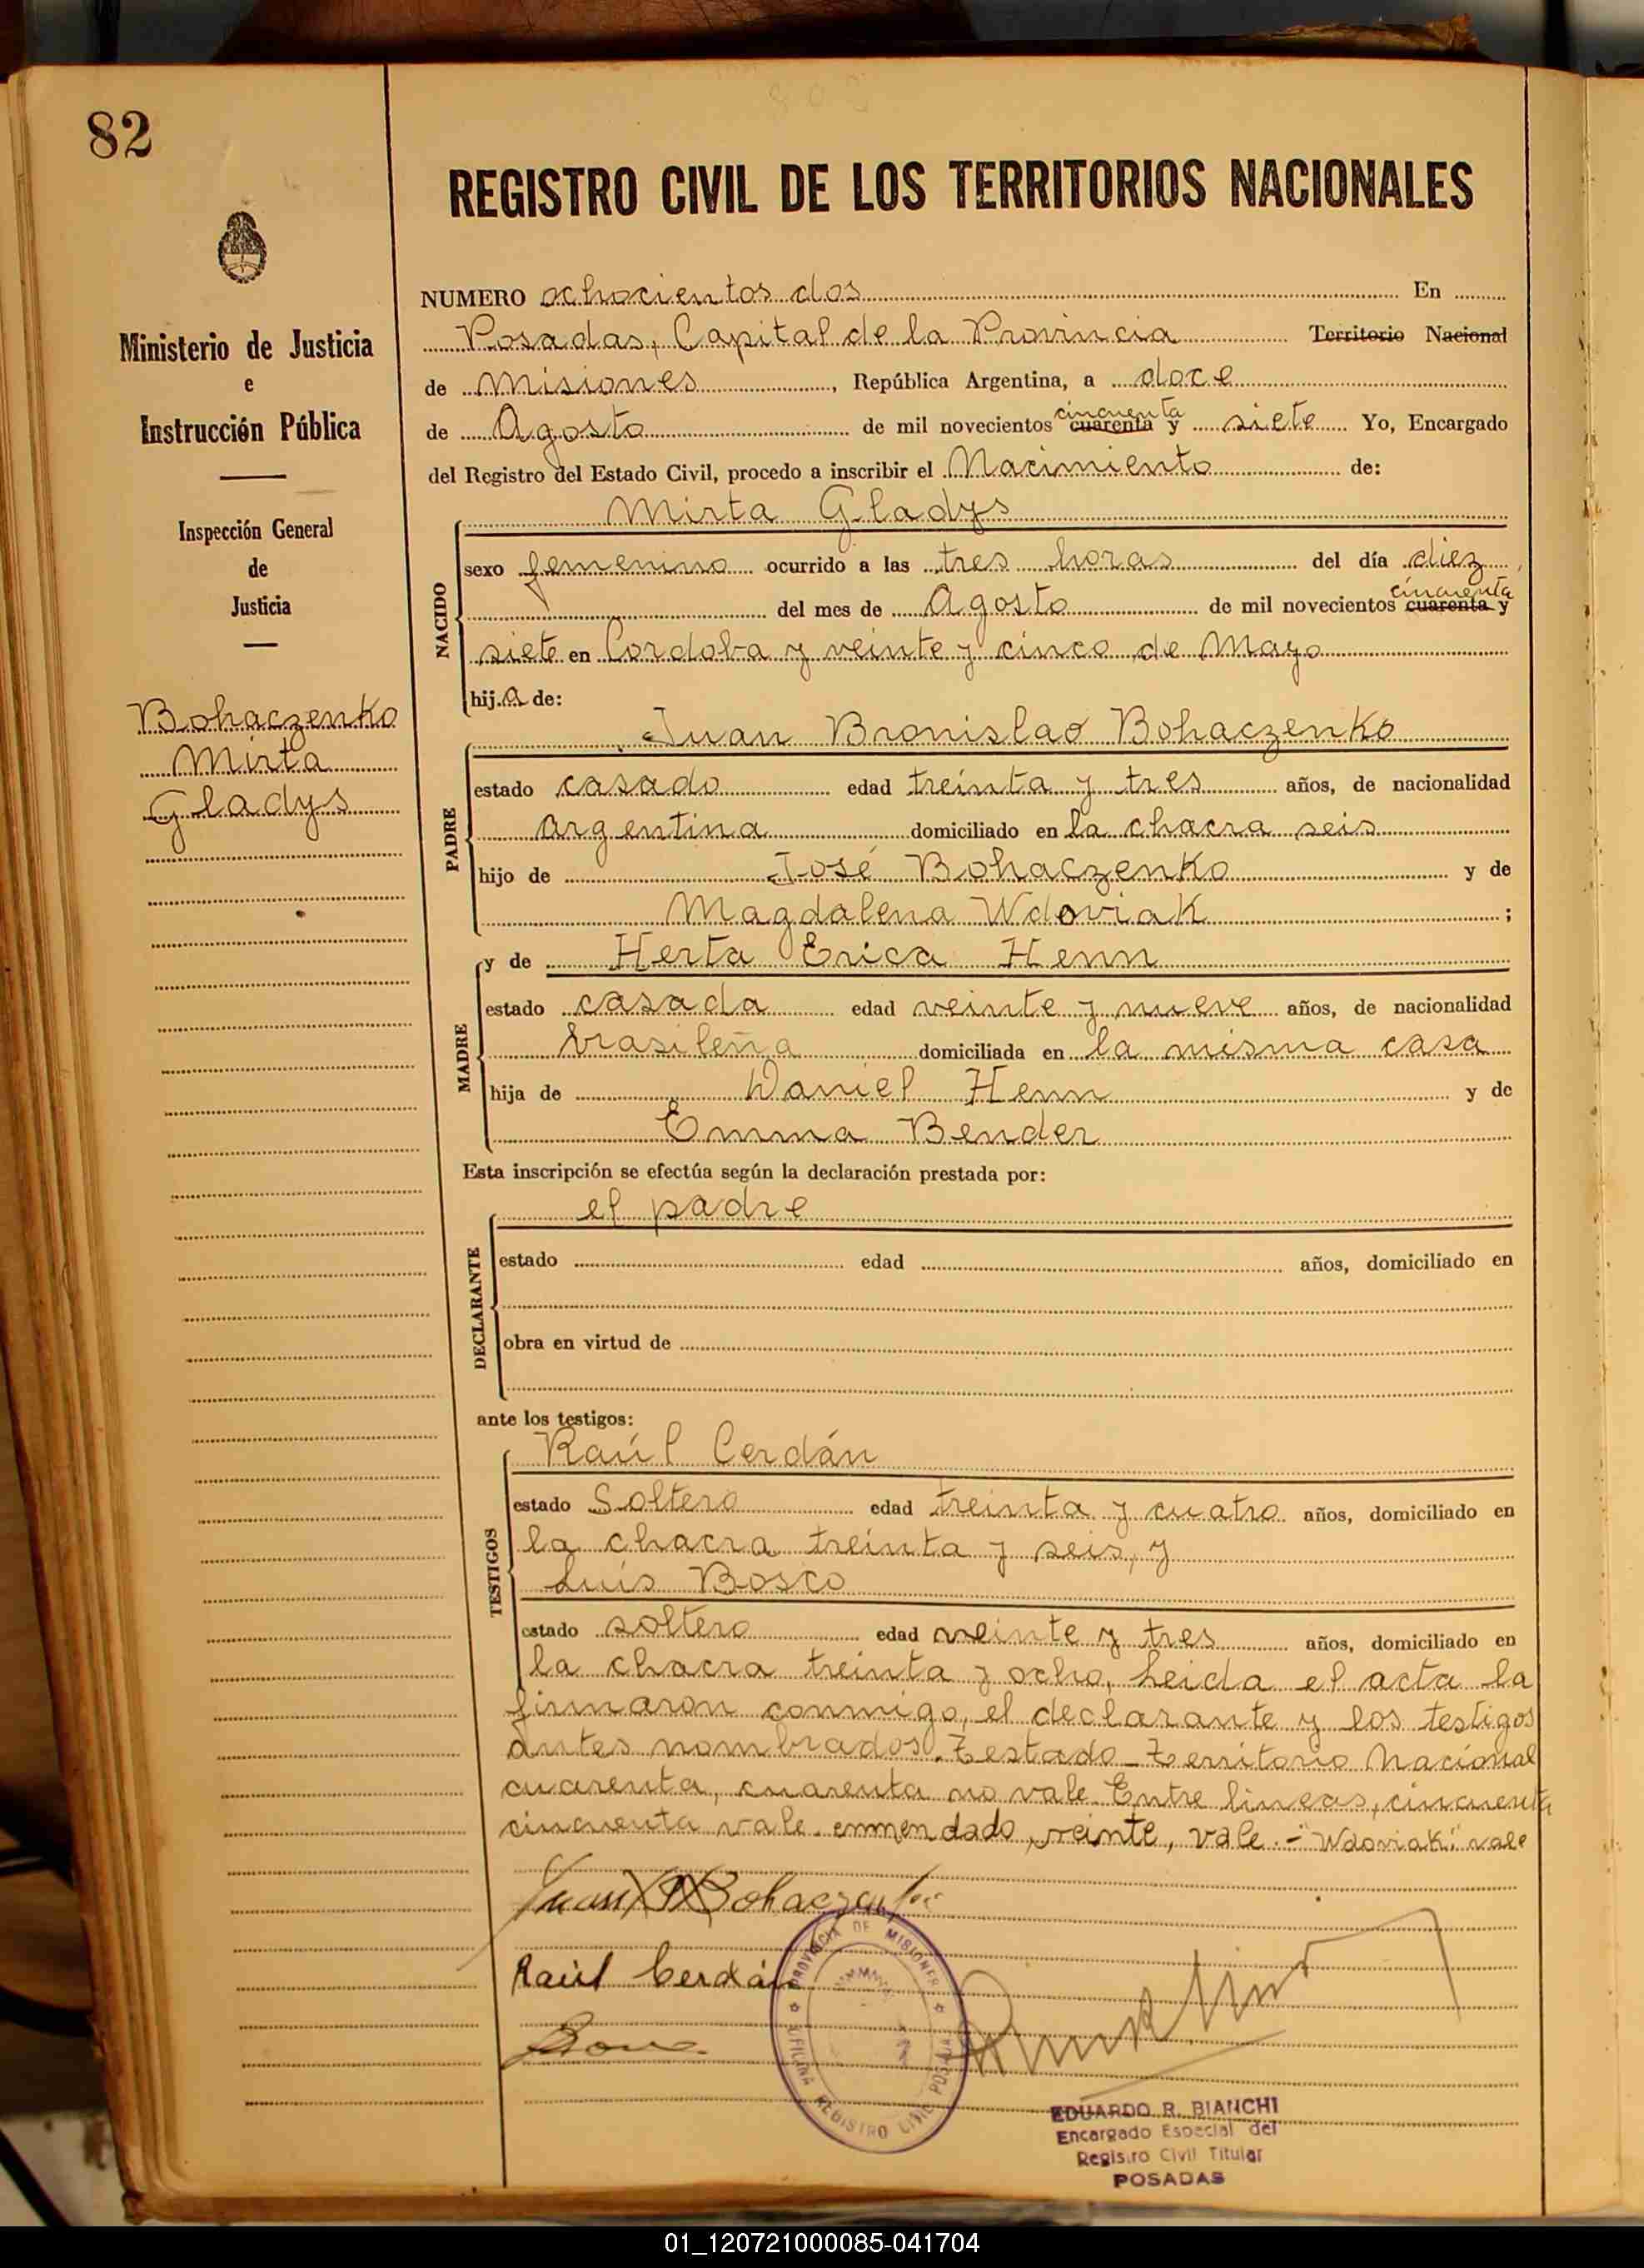 82
REGISTRO CIVIL DE LOS TERRITORIOS NACIONALES
Ministerio de Justicia
e
Instrucción Pública
Inspección General
de
Justicia
Bohaczenko
Mirta
Gladys
NUMERO ochocientos dos En
Posadas, Capital de la Provincia Territorio Nacional
de Misiones, República Argentina, a doce
de Agosto de mil novecientos cincuenta cuarenta y siete Yo, Encargado
del Registro del Estado Civil, procedo a inscribir el Nacimiento de:
NACIDO
Mirta Gladys
sexo femenino ocurrido a las tres horas del día diez,
del mes de Agosto de mil novecientos cincuenta cuarenta y
siete en Cordoba y veinte y cinco de Mayo
hija de:
PADRE
Juan Bronislao Bohaczenko
estado casado edad treinta y tres años, de nacionalidad
argentina domiciliado en la chacra seis
hijo de José Bohaczenko y de
Magdalena Wdoviak;
MADRE
y de Herta Erica Henn
estado casada edad veinte y nueve años, de nacionalidad
brasileña domiciliada en la misma casa
hija de Daniel Henn y de
Emma Bender
Esta inscripción se efectúa según la declaración prestada por:
DECLARANTE
el padre
estado edad años, domiciliado en
obra en virtud de
ante los testigos:
TESTIGOS
Raúl Cerdán
estado Soltero edad treinta y cuatro años, domiciliado en
la chacra treinta y seis, y
Luis Bosco
estado soltero edad veinte y tres años, domiciliado en
la chacra treinta y ocho, Leida el acta la
firmaron conmigo, el declarante y los testigos
antes nombrados. Testado-Territorio Nacional
cuarenta, cuarenta no vale. Entre lineas, cincuenta
cincuenta vale. enmendado, veinte, vale.-"Wdoviak" vale
Juan B Bohaczenko
Raúl Cerdán
PROVINCIA DE MISIONES
REGISTRO CIVIL POSADAS
EDUARDO R. BIANCHI
Encargado Especial del
Registro Civil Titular
POSADAS
01_120721000085-041704